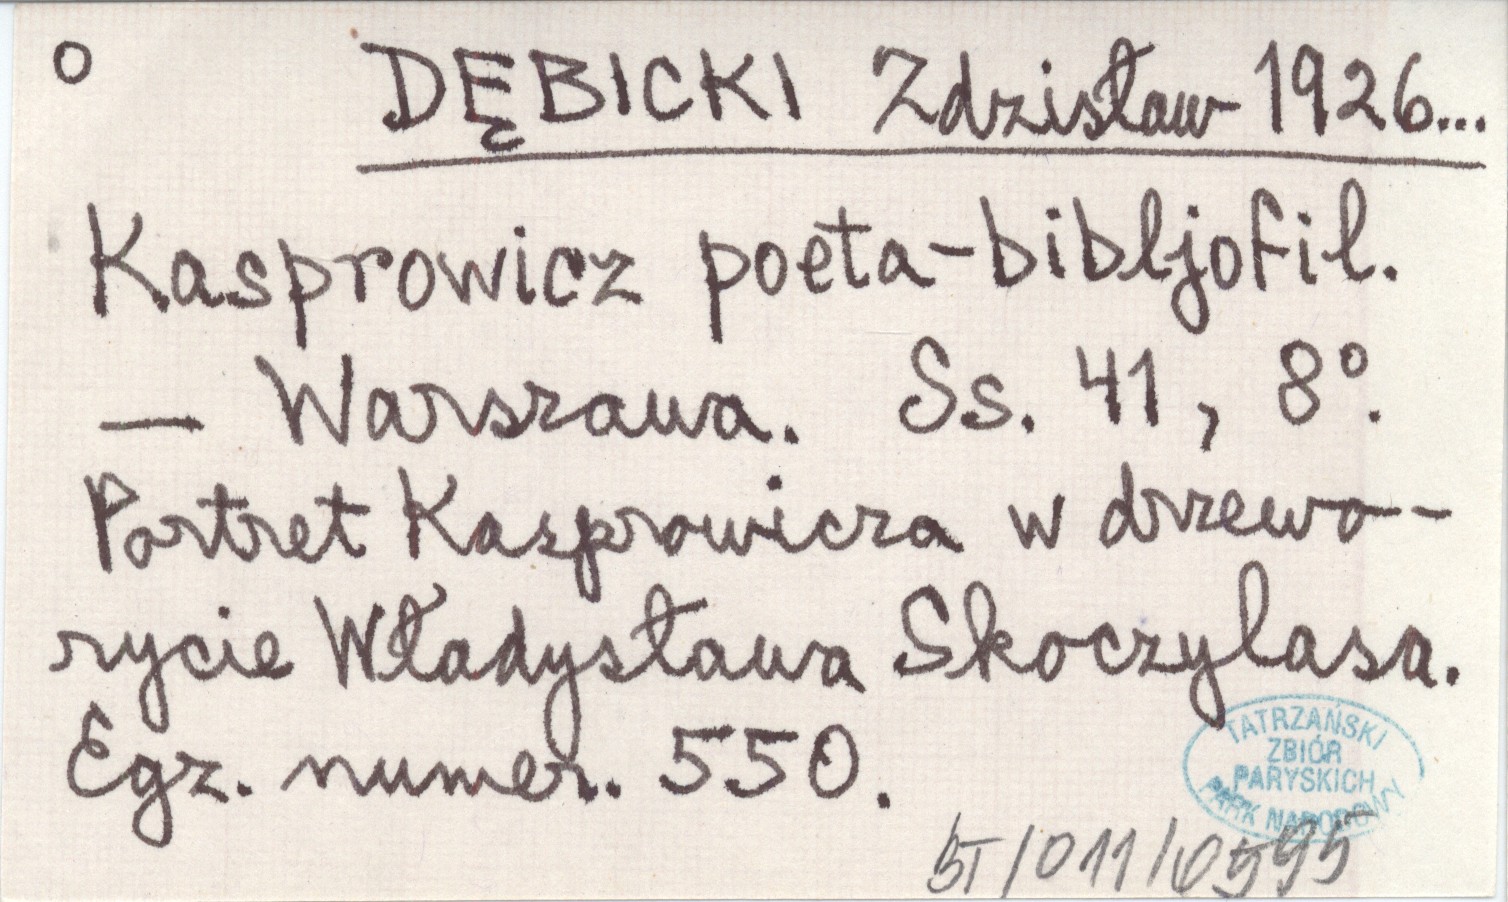 o DĘBICKI Zdzisław 1926...
Kasprowicz poeta-bibljofil.
— Warszawa. Ss. 41, 8°.
Portret Kasprowicza w drzewo-
rycie Władysława Skoczylasa.
Egz. numer. 550.
TATRZAŃSKI
ZBIÓR
PARYSKICH
PARK NARODOWY
BT/011/0595